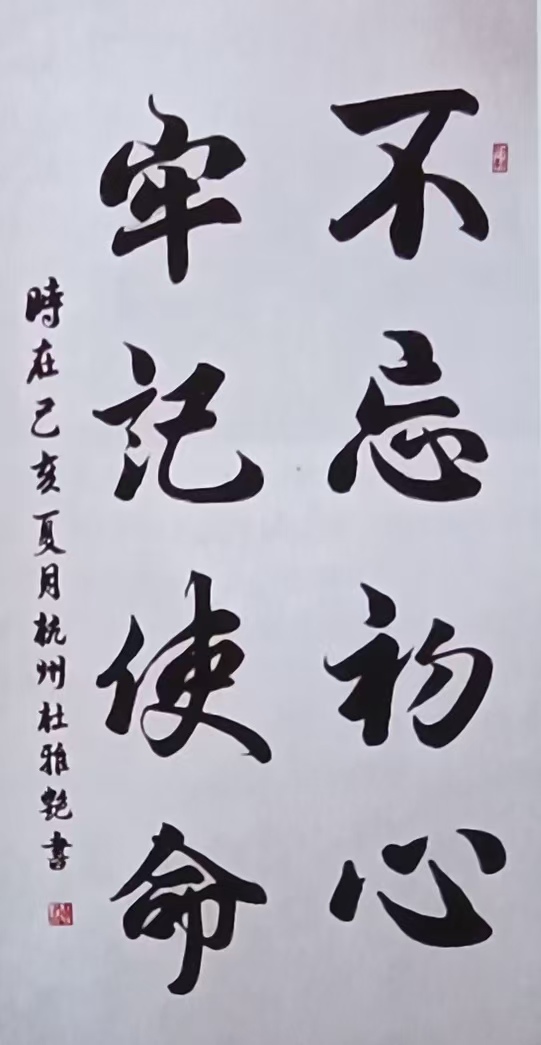 不忘初心
牢记使命
時在己亥夏月杭州杜雅艷書